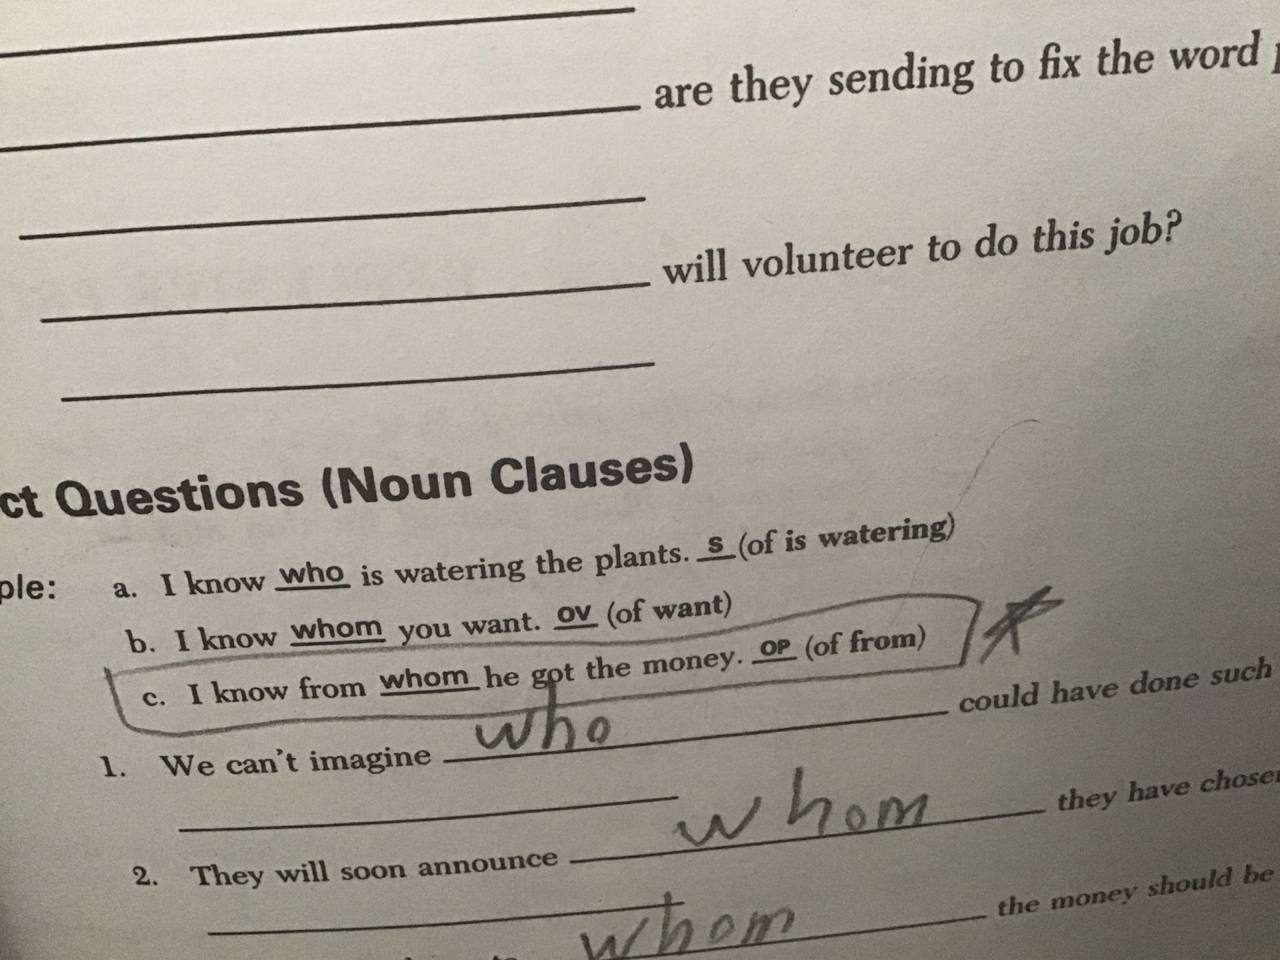 are they sending to fix the word
will volunteer to do this job?
ct Questions (Noun Clauses)
ple: a. I know who is watering the plants. S (of is watering)
b. I know whom you want. OV (of want)
c. I know from whom he got the money. OP (of from)
1. We can't imagine who could have done such
2. They will soon announce whom they have chosen
whom the money should be